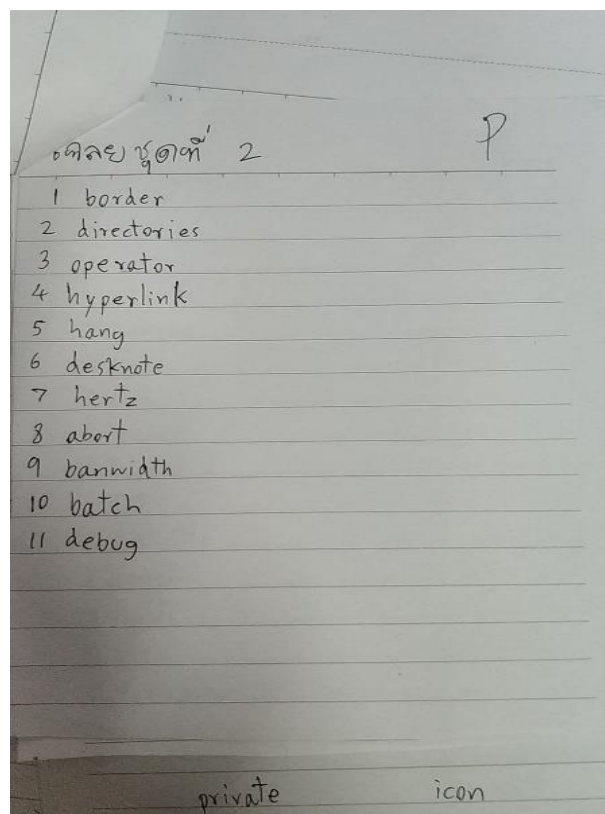 เฉลย ชุดที่ 2 P
1 border
2 directories
3 operator
4 hyperlink
5 hang
6 desknote
7 hertz
8 abort
9 banwidth
10 batch
11 debug
private icon